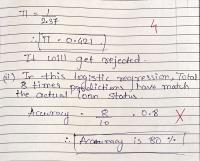 π = 1
2.37
4
∴ π = 0.421
It will get rejected.
(ii) In this logistic regression, Total
8 times predictions have match
the actual loan status
Accuracy = 8 = 0.8 X
10
∴ Accuracy is 80 %